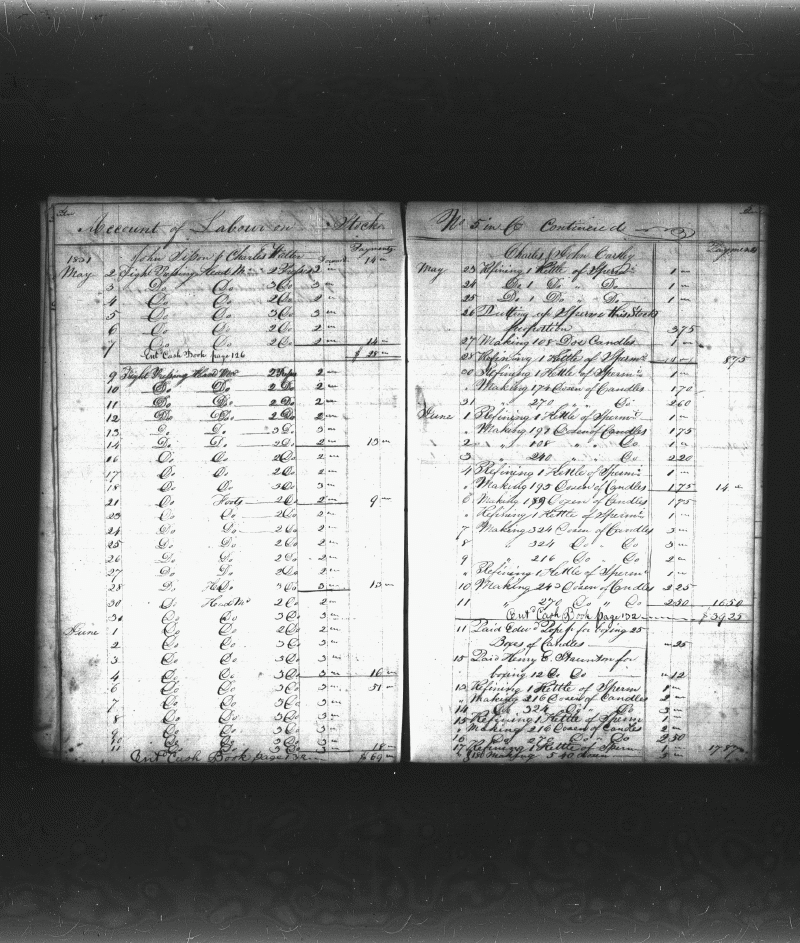 Account of Labour in Stock
1831 John Sisson & Charles Payments
14 "
May 2 Tight Pressing Head Mr 2 Press 2 "
3 Do Do 3 Do 3 "
4 Do Do 2 Do 2 "
5 Do Do 3 Do 3 "
6 Do Do 2 Do 2 "
7 Do Do 2 Do 2 " 14 "
Entd Cash Book page 126 $ 28 "
9 Tight Pressing Head Mr 2 Press 2 "
10 Do Do 2 Do 2 "
11 Do Do 2 Do 2 "
12 Do Do 2 Do 2 "
13 Do Do 3 Do 3 "
14 Do Do 2 Do 2 " 13 "
16 Do Do 2 Do 2 "
17 Do Do 2 Do 2 "
18 Do Do 3 Do 3 "
21 Do Foots 2 Do 2 " 9 "
23 Do Do 2 Do 2 "
24 Do Do 2 Do 2 "
25 Do Do 2 Do 2 "
26 Do Do 2 Do 2 "
27 Do Do 2 Do 2 "
28 Do Do 3 Do 3 " 13 "
30 Do Head Mr 2 Do 2 "
31 Do Do 3 Do 3 "
June 1 Do Do 2 Do 2 "
2 Do Do 3 Do 3 "
3 Do Do 3 Do 3 "
4 Do Do 3 Do 3 " 16 "
6 Do Do 3 Do 3 " 51 "
7 Do Do 3 Do 3 "
8 Do Do 3 Do 3 "
9 Do Do 3 Do 3 "
10 Do Do 3 Do 3 "
11 Do Do 3 Do 3 " 18 "
Entd Cash Book page 132 $ 69 "
No 5 in Co Continued
Charles & John Payments
May 23 Refining 1 Kettle of Sperm 1 "
24 Do 1 Do " Do 1 "
25 Do 1 Do " Do 1 "
26 Putting up Sperm this Stocks
proportion 375
27 Making 108 Doz Candles 1 "
28 Refining 1 Kettle of Sperm 1 " 875
30 Refining 1 Kettle of Sperm 1 "
" Making 174 Dozen of Candles 170
31 " 270 " Do 260
June 1 Refining 1 Kettle of Sperm 1 "
" Making 197 Dozen of Candles 175
2 " " 108 " " Do 1 "
3 " 240 " Do 220
4 Refining 1 Kettle of Sperm 1 "
" Making 193 Dozen of Candles 175 14 "
6 Making 189 Dozen of Candles 175
" Refining 1 Kettle of Sperm 1 "
7 Making 324 Dozen of Candles 3 "
8 " 324 Do " Do 3 "
9 " 216 Do " Do 2 "
" Refining 1 Kettle of Sperm 1 "
10 Making 243 Dozen of Candles 225
11 " 270 Do " Do 250 1650
Entd Cash Book page 132 $ 3925
11 Paid Edwd for boxing 25
Boxes of Candles " 25
15 Paid Henry E. Staunton for
boxing 12 Do Do " 12
13 Refining 1 Kettle of Sperm 1 "
" Making 216 Dozen of Candles 2 "
14 Do 324 Do " Do 3 "
15 Refining 1 Kettle of Sperm 1 "
" Making 216 Dozen of Candles 2 "
16 Do 270 Do " Do 250
17 Refining 1 Kettle of Sperm 1 " 1787
Making 540 dozen 5 "